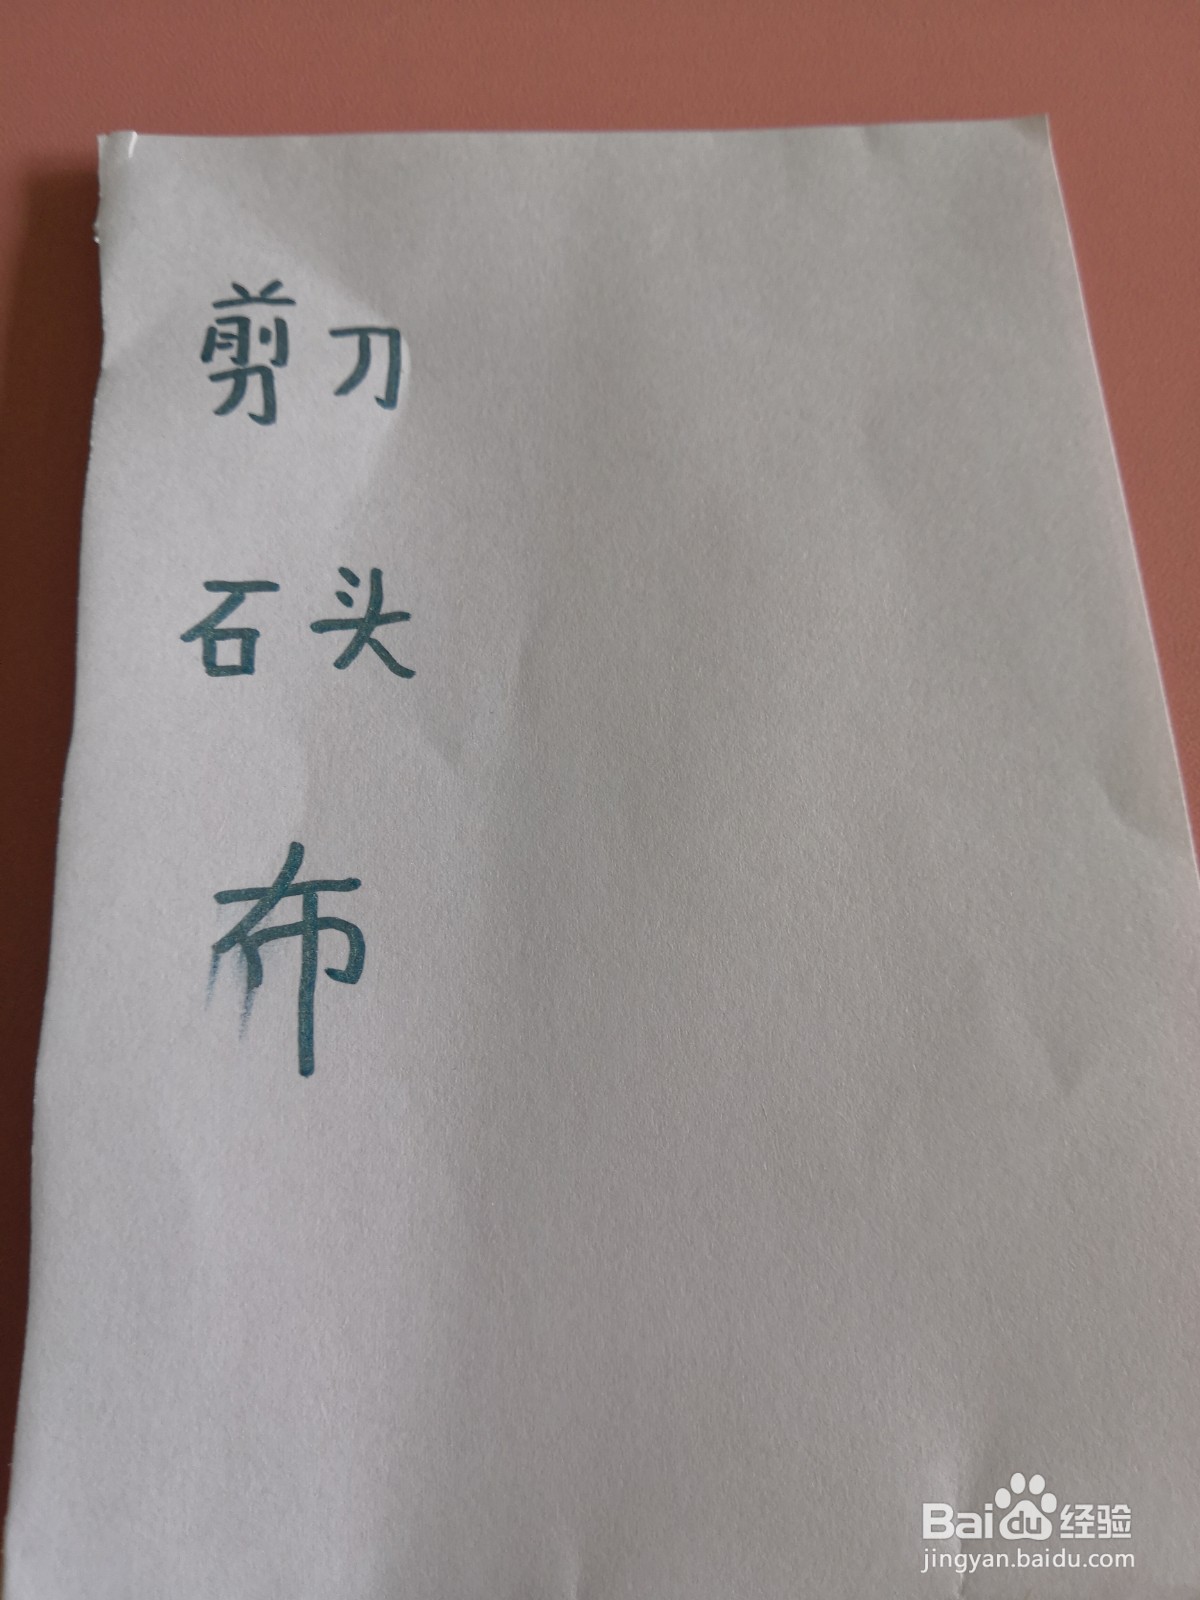 剪刀
石头
布
Baidu经验
jingyan.baidu.com